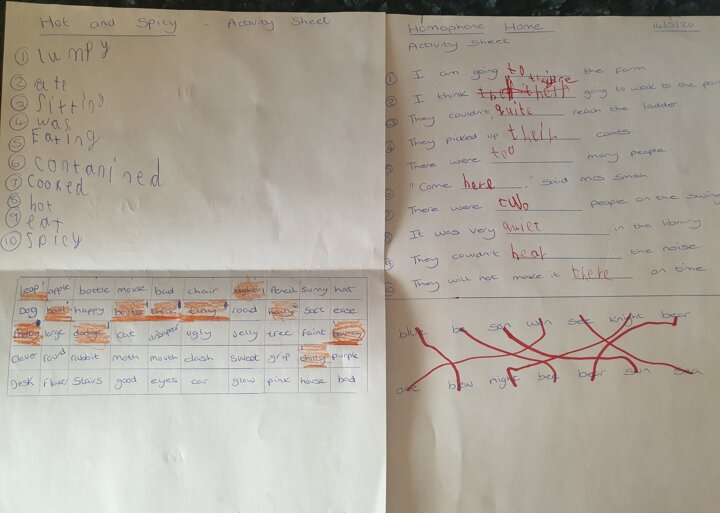 Hot and Spicy - Activity Sheet
① Lumpy
② ate
③ Sitting
④ was
⑤ Eating
⑥ contanined
⑦ Cooked
⑧ hot
⑨ eat
⑩ Spicy
leap apple bottle mouse bad chair eight Pencil sunny hat
Dog bowl happy thick tiny road hairy soft ease
large cat disapear ugly Jelly tree faint bouncy
Clever round rabbit moth mouth clash sweet grip chilly purple
Desk flower Stairs good eyes car glow pink house bad
Homophone Home 14/5/20
Activity Sheet
① I am going to the farm.
② I think going to walk to the
③ They couldn't quite reach the ladder.
They picked up their coats.
There were too many people.
"Come here," said Mrs Smith.
There were two people on the swing
It was very quiet in the library.
They couldn't hear the noise
They will not make it there on time
blue be son won see knight bear
one blew night bee bear sun sea